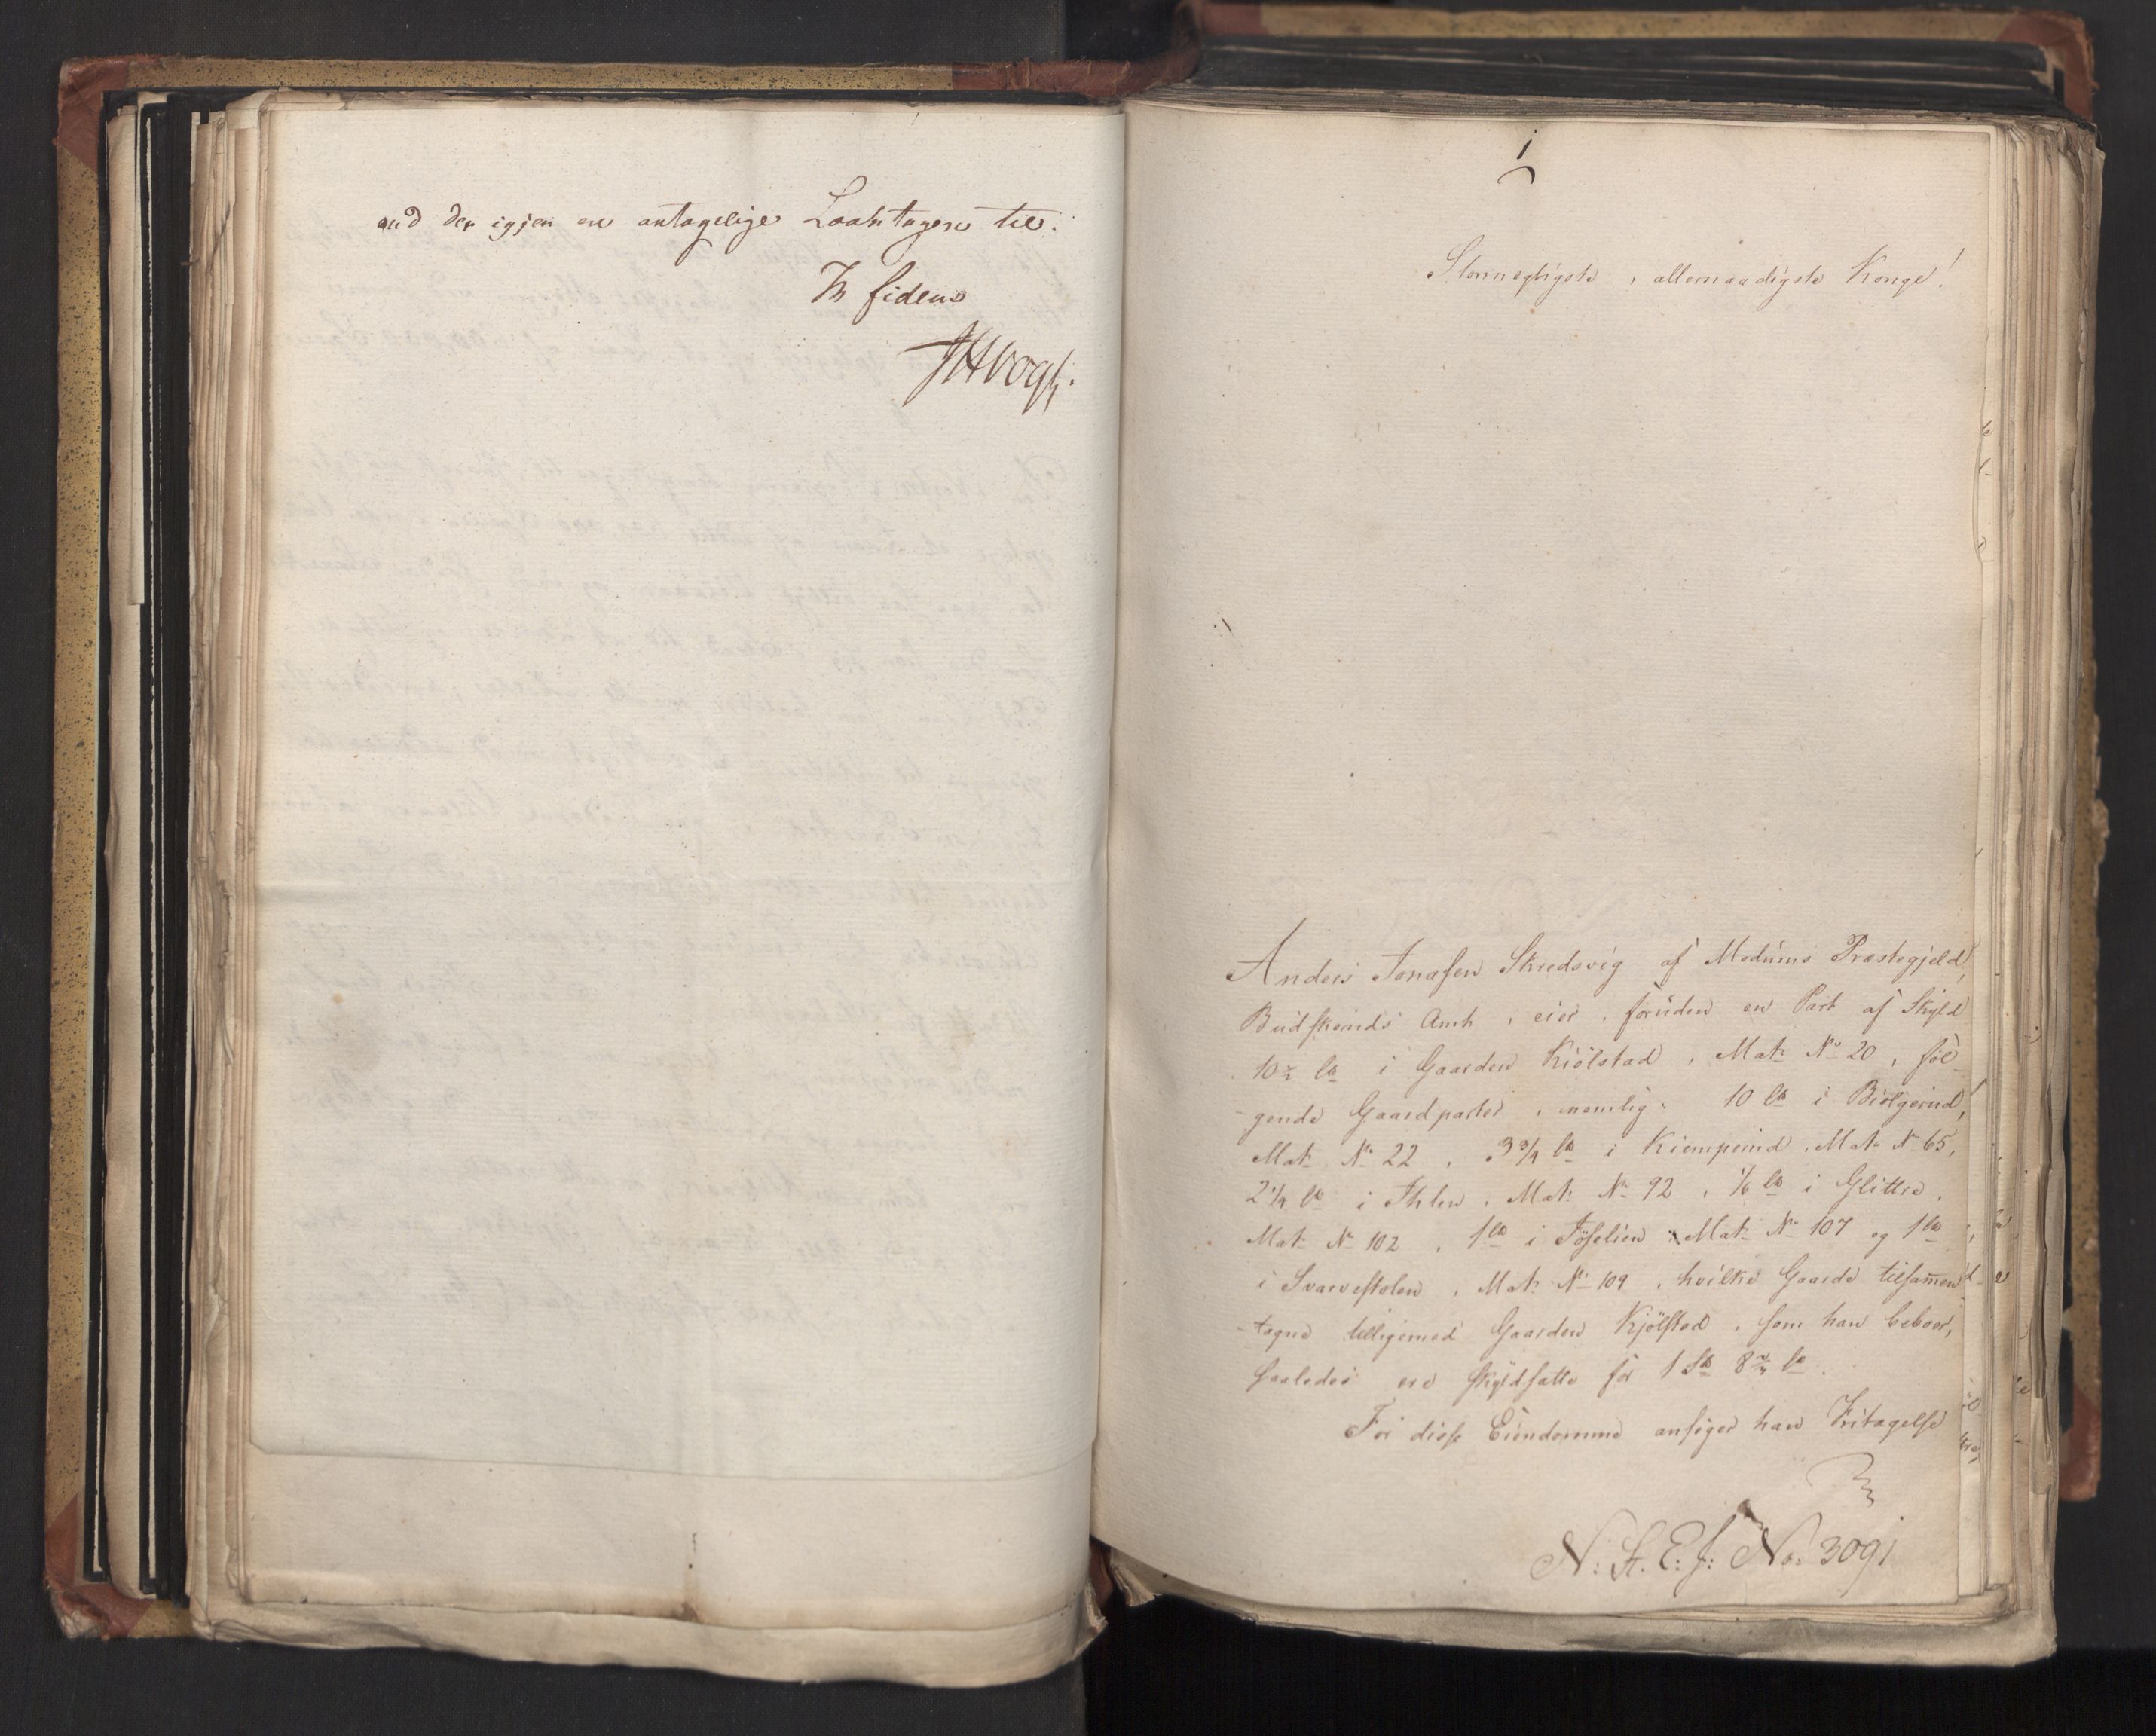 der igjen ere antagelige Laantagere til.
In fidem
JHVogt.
1
Stormægtigste, allernaadigste Konge!
Anders Jonasen Skredsvig af Modums Præstegjeld,
Budskeruds Amt, eier, foruden en Part af Skyld
i Gaarden Kiölstad, Mat: No 20, föl-
gende Gaardparter, nemlig: 10 lb i Biölgerud,
Mat: No 22, 3 3/4 lb i Kiemperud, Mat: No 65,
2 1/4 lb i Ihlen, Mat: No 92, 1/6 lb i Glittre,
Mat: No 102, 1 lb i Föselien, Mat: No 107 og 1 lb
i Svarvestolen, Mat: No 109, hvilke Gaarde tilsam̅en-
tagne tilligemed Gaarden Kjölstad, som han beboer,
saaledes ere skyldsatte for
For disse Eiendomme ansöger han Fritagelse
N: St. E: J: No: 3091